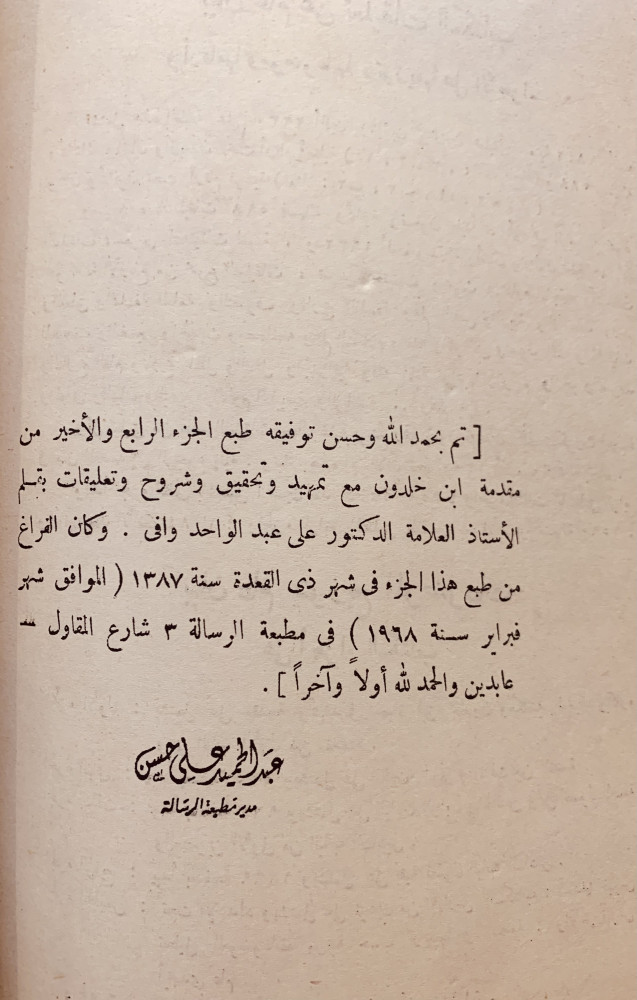 [ تم بحمد الله وحسن توفيقه طبع الجزء الرابع والأخير من
مقدمة ابن خلدون مع تمهيد وتحقيق وشروح وتعليقات بقلم
الأستاذ العلامة الدكتور على عبد الواحد وافى . وكان الفراغ
من طبع هذا الجزء فى شهر ذى القعدة سنة ١٣٨٧ ( الموافق شهر
فبراير سنة ١٩٦٨ ) فى مطبعة الرسالة ٣ شارع المقاول —
عابدين والحمد لله أولاً وآخراً ] .
عبد الحميد على حسن
مدير مطبعة الرسالة